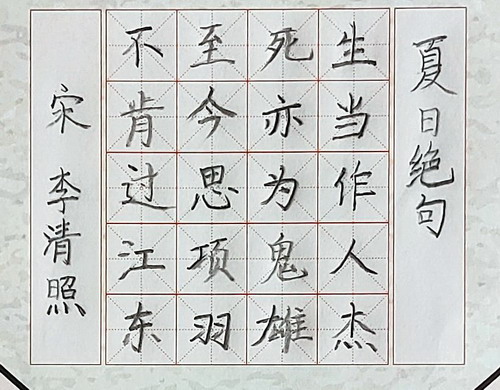 夏日绝句
生当作人杰
死亦为鬼雄
至今思项羽
不肯过江东
宋 李清照